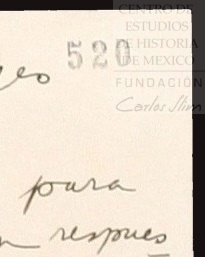 CENTRO DE
ESTUDIOS
DE HISTORIA
DE MEXICO
FUNDACIÓN
Carlos Slim
520
para
respues